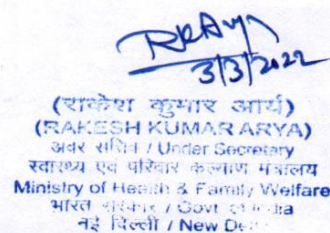 RKArya
3/3/2022
(राकेश कुमार आर्य)
(RAKESH KUMAR ARYA)
अवर सचिव / Under Secretary
स्वास्थ्य एवं परिवार कल्याण मंत्रालय
Ministry of Health & Family Welfare
भारत सरकार / Govt. of India
नई दिल्ली / New